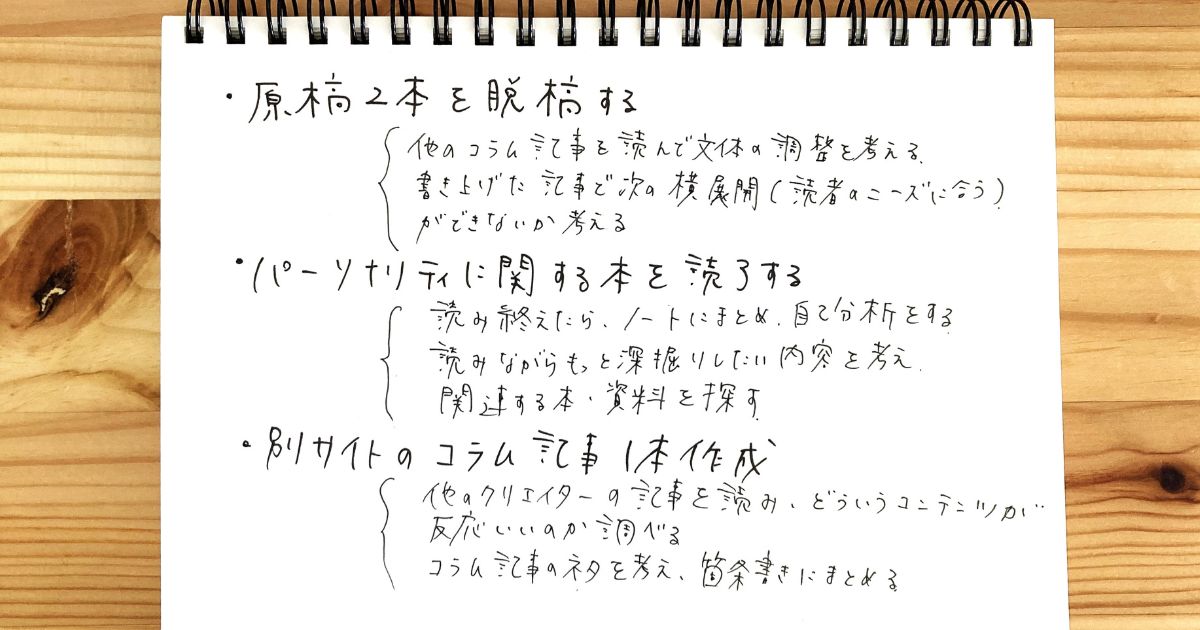 ・原稿2本を脱稿する
他のコラム記事を読んで文体の調整を考える、
書き上げた記事で次の横展開(読者のニーズに合う)
ができないか考える
・パーソナリティに関する本を読了する
読み終えたら、ノートにまとめ、自己分析をする
読みながらもっと深掘りしたい内容を考え、
関連する本・資料を探す
・別サイトのコラム記事1本作成
他のクリエイターの記事を読み、どういうコンテンツが
反応いいのか調べる
コラム記事のネタを考え、箇条書きにまとめる